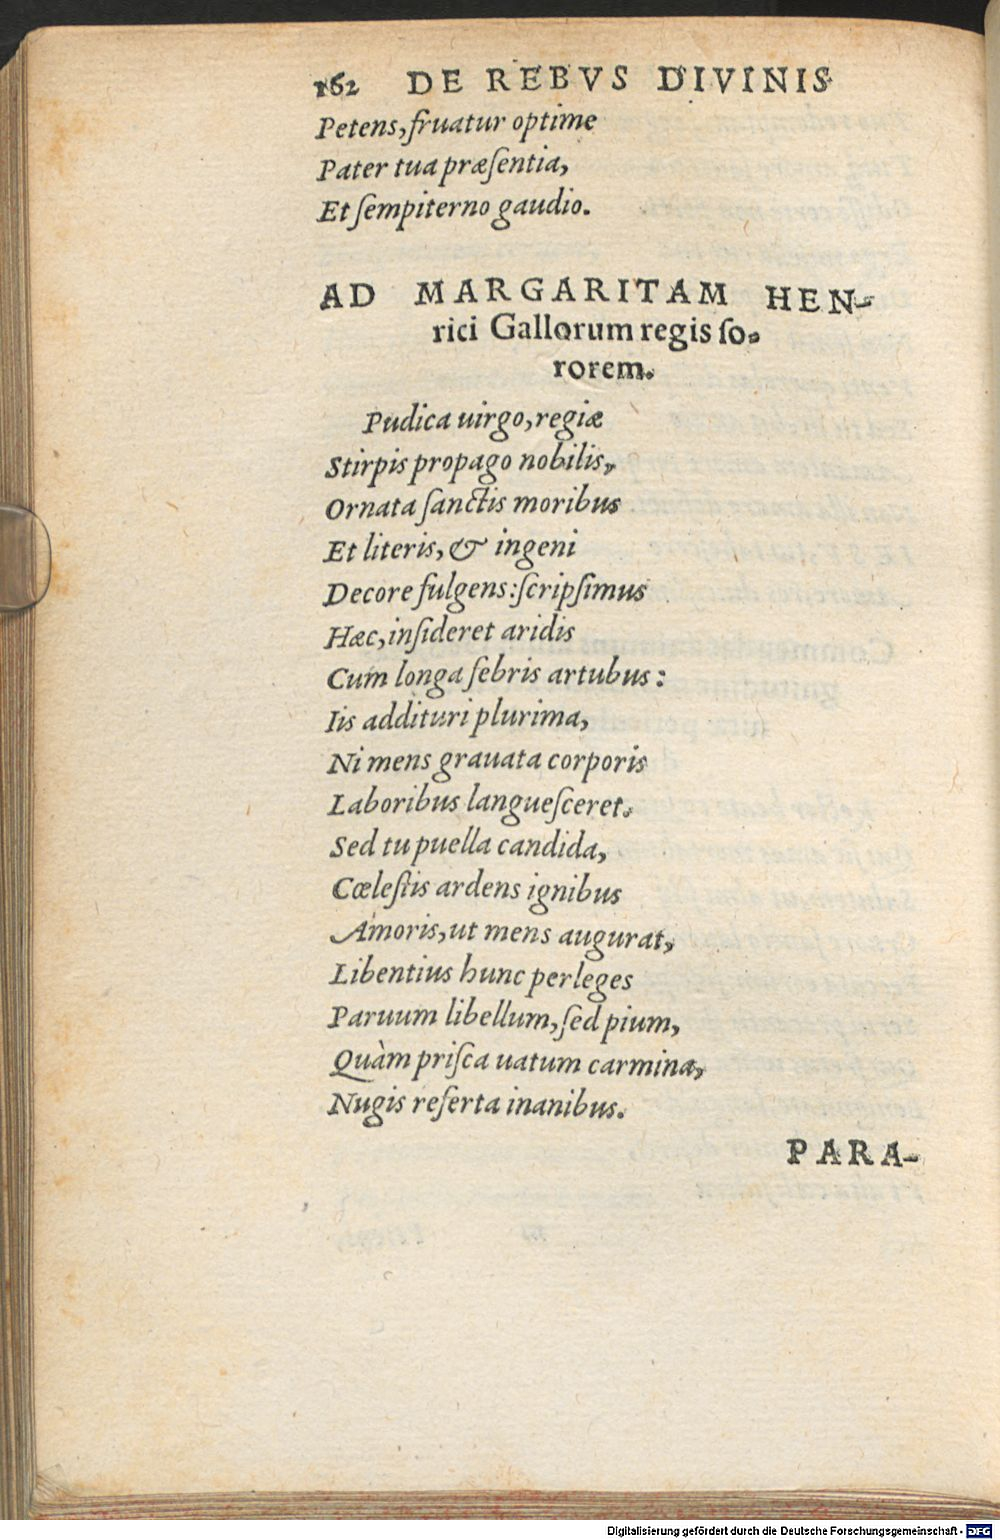 162 DE REBVS DIVINIS
Petens, fruatur optime
Pater tua præſentia,
Et ſempiterno gaudio.
AD MARGARITAM HEN-
rici Gallorum regis ſo-
rorem.
Pudica uirgo, regiæ
Stirpis propago nobilis,
Ornata ſanctis moribus
Et literis, & ingeni
Decore fulgens: ſcripſimus
Hæc, inſideret aridis
Cum longa febris artubus:
Iis addituri plurima,
Ni mens grauata corporis
Laboribus langueſceret.
Sed tu puella candida,
Cœleſtis ardens ignibus
Amoris, ut mens augurat,
Libentius hunc perleges
Paruum libellum, ſed pium,
Quàm priſca uatum carmina,
Nugis referta inanibus.
PARA-
Digitalisierung gefördert durch die Deutsche Forschungsgemeinschaft - DFG